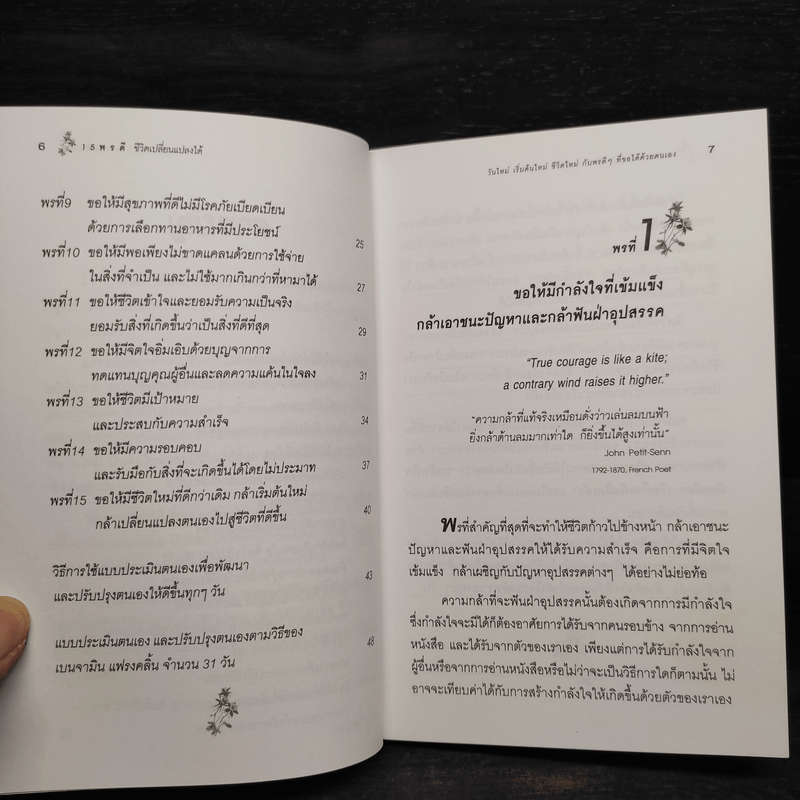 6 15พรดี ชีวิตเปลี่ยนแปลงได้
พรที่9 ขอให้มีสุขภาพที่ดีไม่มีโรคภัยเบียดเบียน
ด้วยการเลือกทานอาหารที่มีประโยชน์ 25
พรที่10 ขอให้มีพอเพียงไม่ขาดแคลนด้วยการใช้จ่าย
ในสิ่งที่จำเป็น และไม่ใช้มากเกินกว่าที่หามาได้ 27
พรที่11 ขอให้ชีวิตเข้าใจและยอมรับความเป็นจริง
ยอมรับสิ่งที่เกิดขึ้นว่าเป็นสิ่งที่ดีที่สุด 29
พรที่12 ขอให้มีจิตใจอิ่มเอิบด้วยบุญจากการ
ทดแทนบุญคุณผู้อื่นและลดความแค้นในใจลง 31
พรที่13 ขอให้ชีวิตมีเป้าหมาย
และประสบกับความสำเร็จ 34
พรที่14 ขอให้มีความรอบคอบ
และรับมือกับสิ่งที่จะเกิดขึ้นได้โดยไม่ประมาท 37
พรที่15 ขอให้มีชีวิตใหม่ที่ดีกว่าเดิม กล้าเริ่มต้นใหม่
กล้าเปลี่ยนแปลงตนเองไปสู่ชีวิตที่ดีขึ้น 40
วิธีการใช้แบบประเมินตนเองเพื่อพัฒนา
และปรับปรุงตนเองให้ดีขึ้นทุกๆ วัน 43
แบบประเมินตนเอง และปรับปรุงตนเองตามวิธีของ
เบนจามิน แฟรงคลิ้น จำนวน 31 วัน 48
วันใหม่ เริ่มต้นใหม่ ชีวิตใหม่ กับพรดีๆ ที่ขอได้ด้วยตนเอง 7
พรที่ 1
ขอให้มีกำลังใจที่เข้มแข็ง
กล้าเอาชนะปัญหาและกล้าฟันฝ่าอุปสรรค
“True courage is like a kite;
a contrary wind raises it higher.”
“ความกล้าที่แท้จริงเหมือนดั่งว่าวเล่นลมบนฟ้า
ยิ่งกล้าต้านลมมากเท่าใด ก็ยิ่งขึ้นได้สูงเท่านั้น”
John Petit-Senn
1792-1870, French Poet
พรที่สำคัญที่สุดที่จะทำให้ชีวิตก้าวไปข้างหน้า กล้าเอาชนะ
ปัญหาและฟันฝ่าอุปสรรคให้ได้รับความสำเร็จ คือการที่มีจิตใจ
เข้มแข็ง กล้าเผชิญกับปัญหาอุปสรรคต่างๆ ได้อย่างไม่ย่อท้อ
ความกล้าที่จะฟันฝ่าอุปสรรคนั้นต้องเกิดจากการมีกำลังใจ
ซึ่งกำลังใจจะมีได้ก็ต้องอาศัยการได้รับจากคนรอบข้าง จากการอ่าน
หนังสือ และได้รับจากตัวของเราเอง เพียงแต่การได้รับกำลังใจจาก
ผู้อื่นหรือจากการอ่านหนังสือหรือไม่ว่าจะเป็นวิธีการใดก็ตามนั้น ไม่
อาจจะเทียบค่าได้กับการสร้างกำลังใจให้เกิดขึ้นด้วยตัวของเราเอง